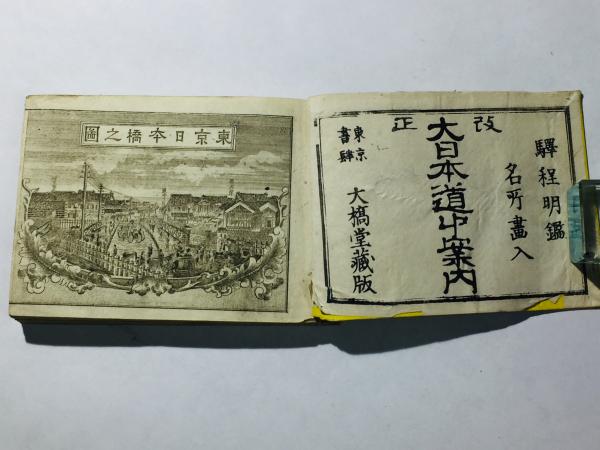 改正
驛程明鑑
名所畫入
大日本道中案内
東京
書肆
大橋堂藏版
東京日本橋之圖